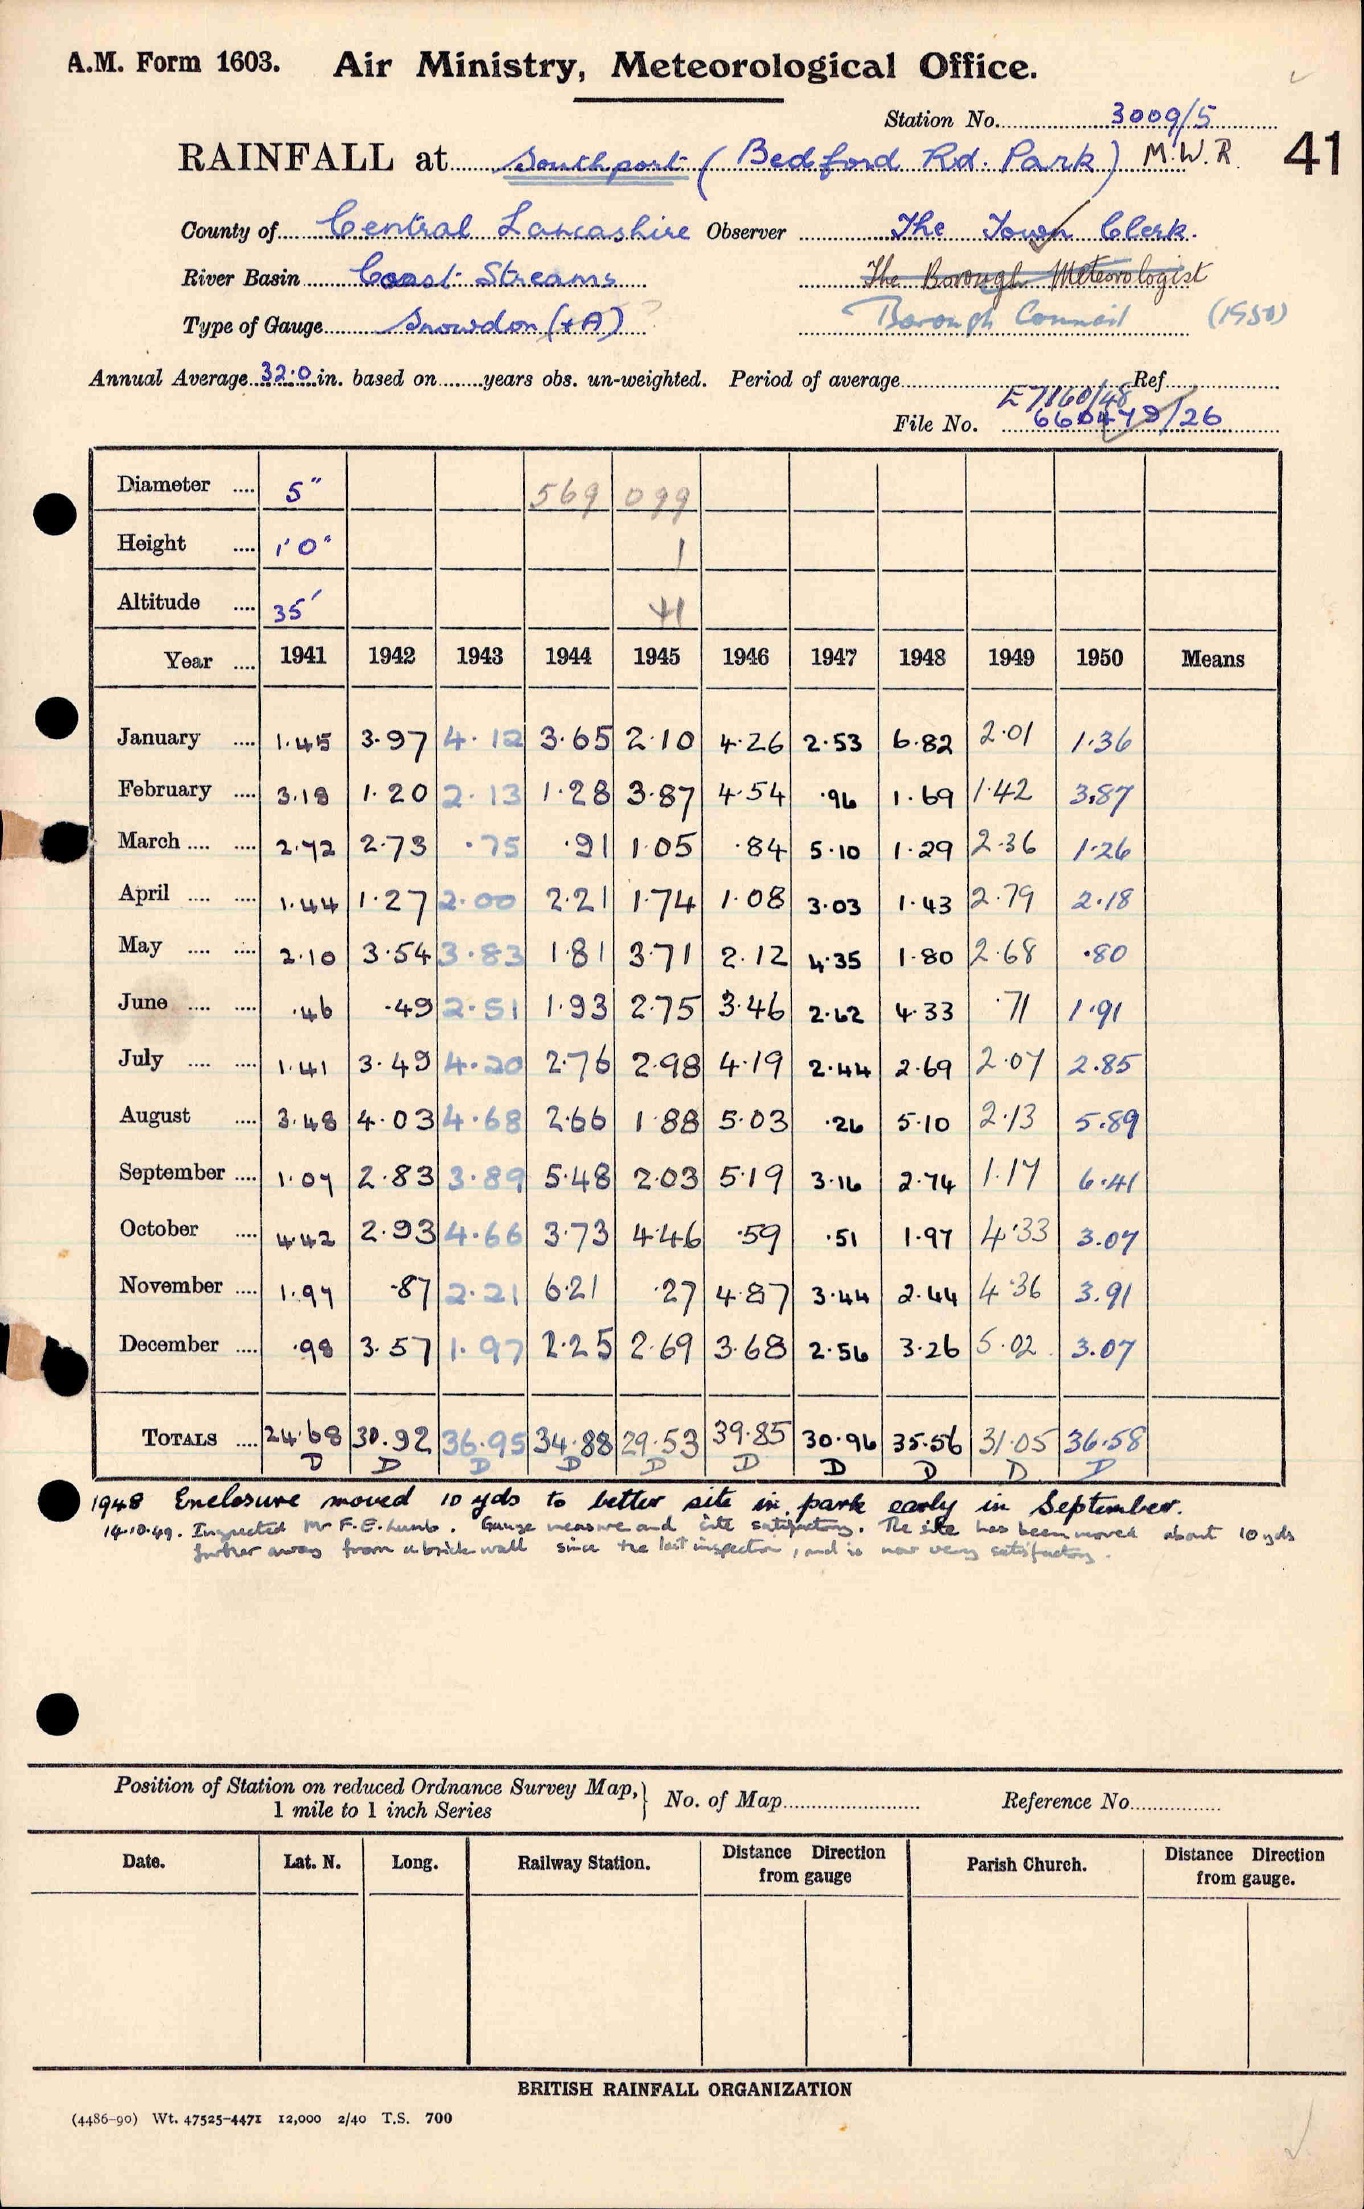 A.M. Form 1603. Air Ministry, Meteorological Office.
Station No. 3009/5
RAINFALL at Southport (Bedford Rd. Park) M.W.R. 41
County of Central Lancashire Observer The Town Clerk.
River Basin Coast Streams The Borough Meteorologist
Type of Gauge Snowdon (+A) ? Borough Council (1950)
Annual Average 32.0 in. based on years obs. un-weighted. Period of average Ref.
E7160/48
File No. 660479/26
Diameter .... 5" 569 099
Height .... 1'0" 1
Altitude .... 35' 41
Year .... 1941 1942 1943 1944 1945 1946 1947 1948 1949 1950 Means
January .... 1.45 3.97 4.12 3.65 2.10 4.26 2.53 6.82 2.01 1.36
February .... 3.18 1.20 2.13 1.28 3.87 4.54 .96 1.69 1.42 3.87
March .... .... 2.72 2.73 .75 .91 1.05 .84 5.10 1.29 2.36 1.26
April .... .... 1.44 1.27 2.00 2.21 1.74 1.08 3.03 1.43 2.79 2.18
May .... .... 2.10 3.54 3.83 1.81 3.71 2.12 4.35 1.80 2.68 .80
June .... .... .46 .49 2.51 1.93 2.75 3.46 2.62 4.33 .71 1.91
July .... .... 1.41 3.49 4.20 2.76 2.98 4.19 2.44 2.69 2.07 2.85
August .... 3.48 4.03 4.68 2.66 1.88 5.03 .26 5.10 2.13 5.89
September .... 1.07 2.83 3.89 5.48 2.03 5.19 3.16 2.74 1.17 6.41
October .... 4.42 2.93 4.66 3.73 4.46 .59 .51 1.97 4.33 3.07
November .... 1.97 .87 2.21 6.21 .27 4.87 3.44 2.44 4.36 3.91
December .... .98 3.57 1.97 2.25 2.69 3.68 2.56 3.26 5.02 3.07
TOTALS .... 24.68 30.92 36.95 34.88 29.53 39.85 30.96 35.56 31.05 36.58
D D D D D D D D D D
1948 Enclosure moved 10 yds to better site in park early in September.
14.10.49. Inspected Mr F.E. Lumb. Gauge measure and site satisfactory. The site has been moved about 10 yds
further away from a brick wall since the last inspection, and is now very satisfactory.
Position of Station on reduced Ordnance Survey Map, } No. of Map Reference No.
1 mile to 1 inch Series
Date. Lat. N. Long. Railway Station. Distance Direction from gauge Parish Church. Distance Direction from gauge.
BRITISH RAINFALL ORGANIZATION
(4486-90) Wt. 47525-4471 12,000 2/40 T.S. 700